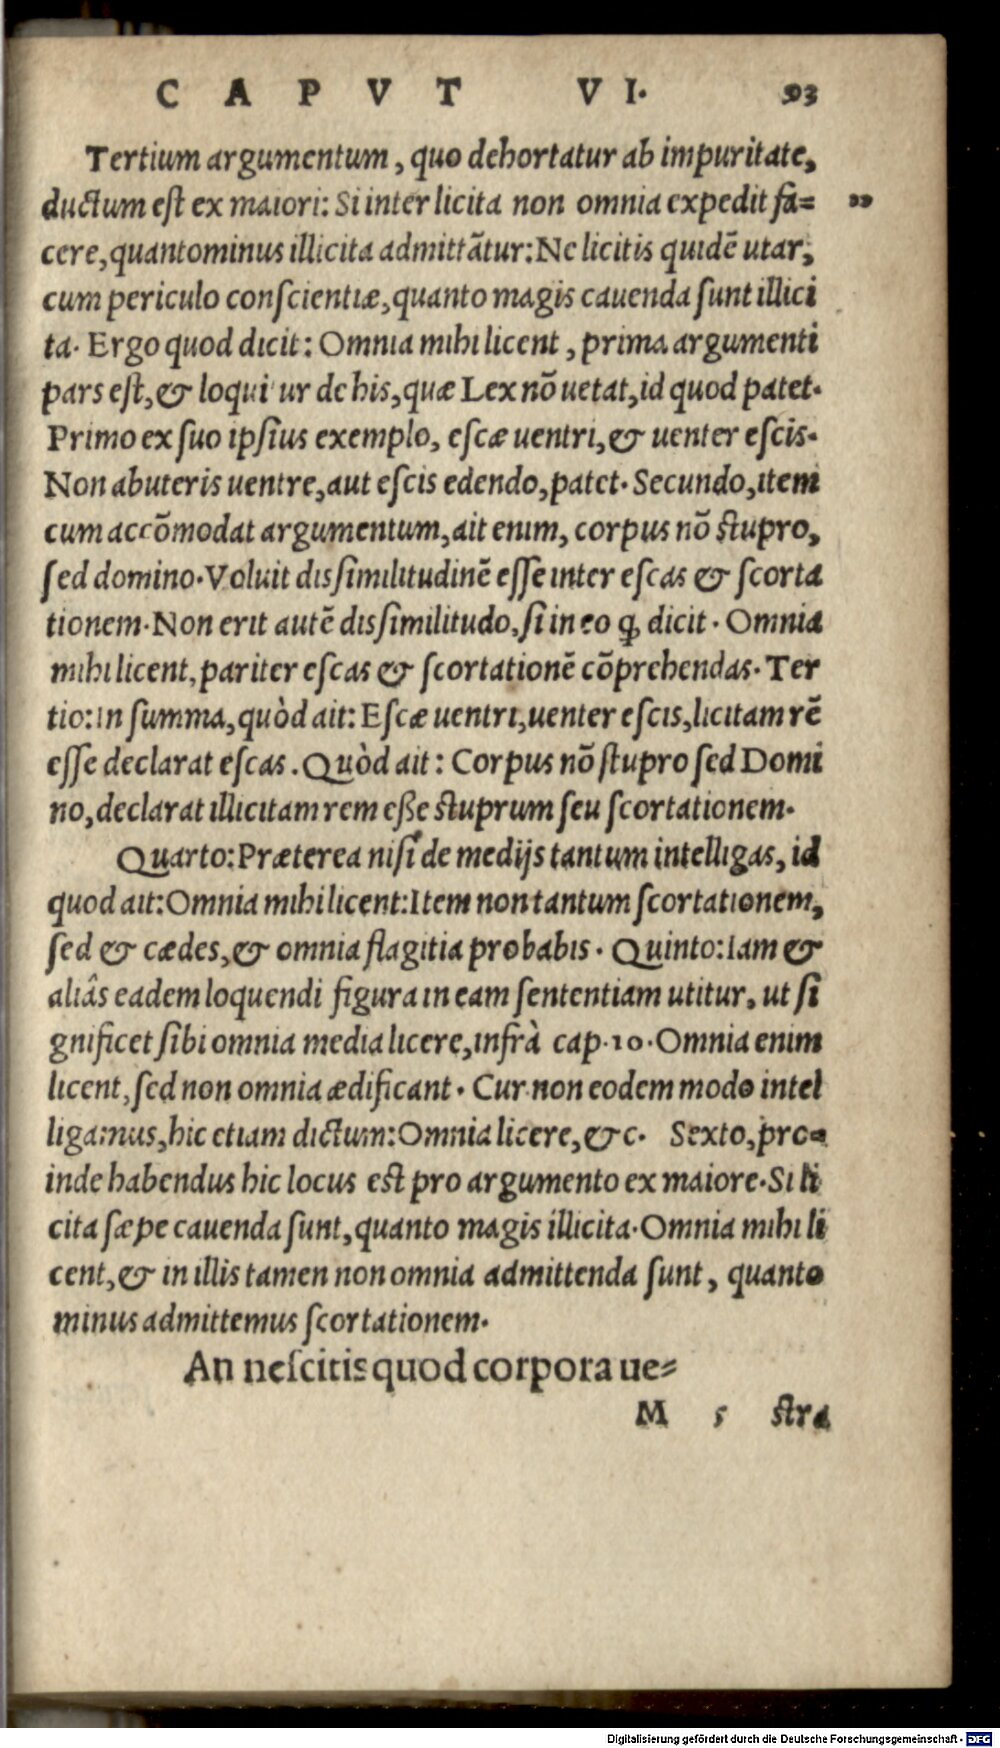 CAPVT VI. 93
Tertium argumentum, quo dehortatur ab impuritate,
ductum est ex maiori: Si inter licita non omnia expedit fa= „
cere, quantominus illicita admittãtur: Ne licitis quidẽ utar,
cum periculo conscientiæ, quanto magis cauenda sunt illici
ta. Ergo quod dicit: Omnia mihi licent, prima argumenti
pars est, & loqui ur de his, quæ Lex nõ uetat, id quod patet.
Primo ex suo ipsius exemplo, escæ uentri, & uenter escis.
Non abuteris uentre, aut escis edendo, patet. Secundo, item
cum accõmodat argumentum, ait enim, corpus nõ stupro,
sed domino. Voluit dissimilitudinẽ esse inter escas & scorta
tionem. Non erit autẽ dissimilitudo, si in eo ꝙ dicit. Omnia
mihi licent, pariter escas & scortationẽ cõprehendas. Ter
tio: In summa, quòd ait: Escæ uentri, uenter escis, licitam rẽ
esse declarat escas. Quòd ait: Corpus nõ stupro sed Domi
no, declarat illicitam rem eße stuprum seu scortationem.
Quarto: Præterea nisi de medijs tantum intelligas, id
quod ait: Omnia mihi licent: Item non tantum scortationem,
sed & cædes, & omnia flagitia probabis. Quinto: Iam &
aliâs eadem loquendi figura in eam sententiam utitur, ut si
gnificet sibi omnia media licere, infrà cap. 10. Omnia enim
licent, sed non omnia ædificant. Cur non eodem modo intel
ligamus, hic etiam dictum: Omnia licere, &c. Sexto, pro=
inde habendus hic locus est pro argumento ex maiore. Si li
cita sæpe cauenda sunt, quanto magis illicita. Omnia mihi li
cent, & in illis tamen non omnia admittenda sunt, quanto
minus admittemus scortationem.
An nescitis quod corpora ue=
M 5 stra
Digitalisierung gefördert durch die Deutsche Forschungsgemeinschaft - DFG